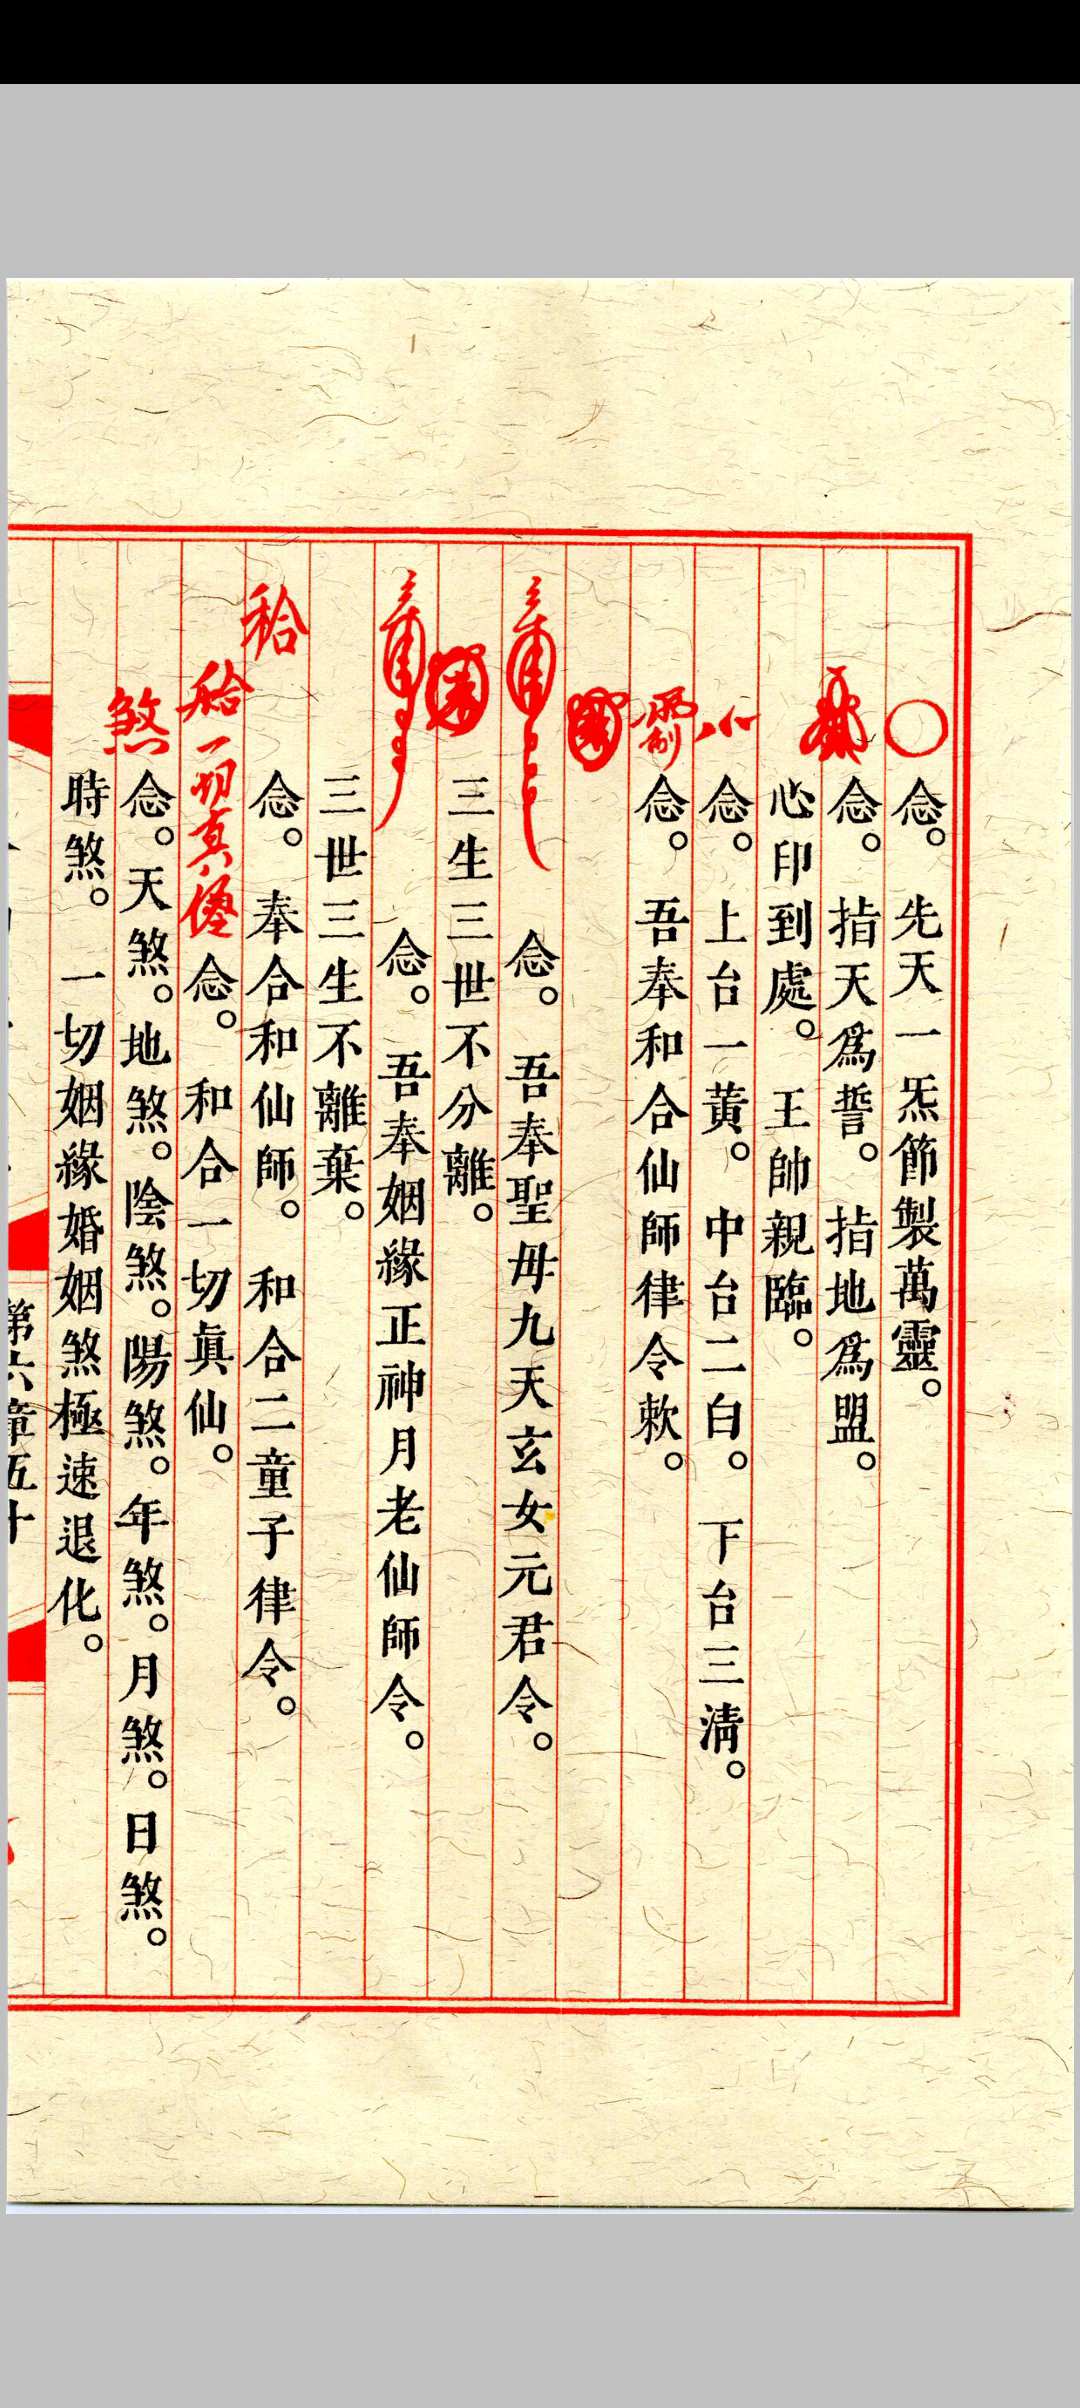 念。先天一炁節製萬靈。
念。指天爲誓。指地爲盟。
心印到處。王帥親臨。
念。上台一黃。中台二白。下台三清。
念。吾奉和合仙師律令敕。
念。吾奉聖母九天玄女元君令。
三生三世不分離。
念。吾奉姻緣正神月老仙師令。
三世三生不離棄。
念。奉合和仙師。和合二童子律令。
一切真僊念。和合一切眞仙。
煞念。天煞。地煞。陰煞。陽煞。年煞。月煞。日煞。
時煞。一切姻緣婚姻煞極速退化。
第六章五十